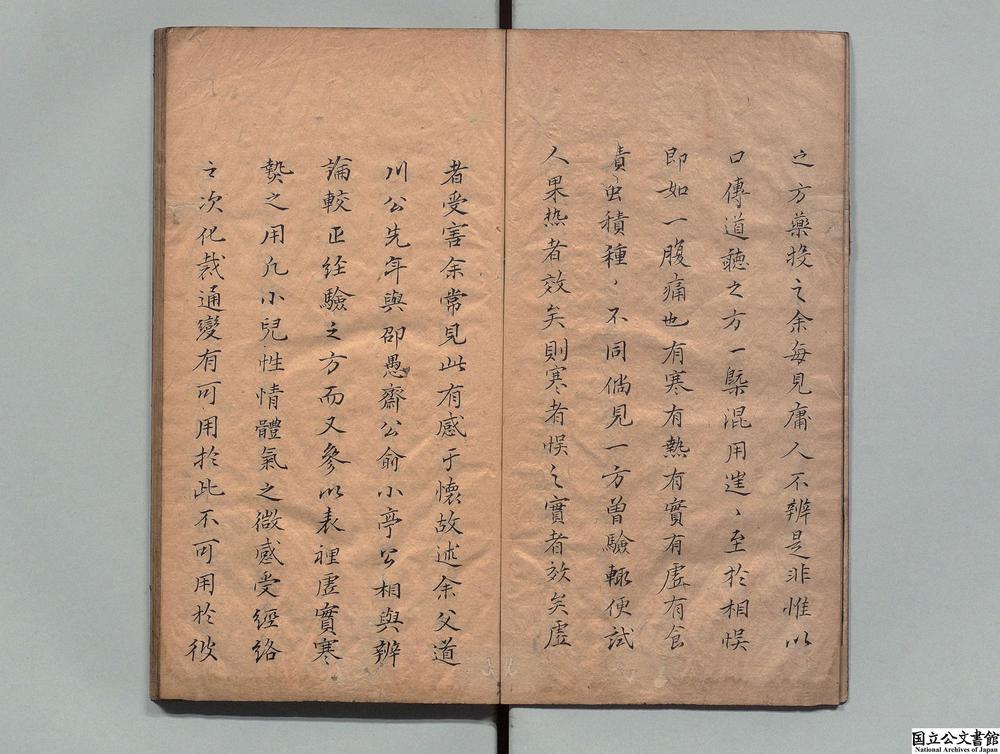 之方藥投之余每見庸人不辨是非惟以
口傳道聽之方一槩混用遑、至於相悞
即如一腹痛也有寒有熱有實有虛有食
積虫積種、不同倘見一方曾驗輙便試
人果热者效矣則寒者悞之實者效矣虛
者受害余常見此有感于懷故述余父道
川公先年與邵愚齋公俞小亭公相與辨
論較正经驗之方而又參以表裡虛實寒
𤍠之用凢小兒性情體氣之微感受經絡
之次化裁通變有可用於此不可用於彼
国立公文書館
National Archives of Japan